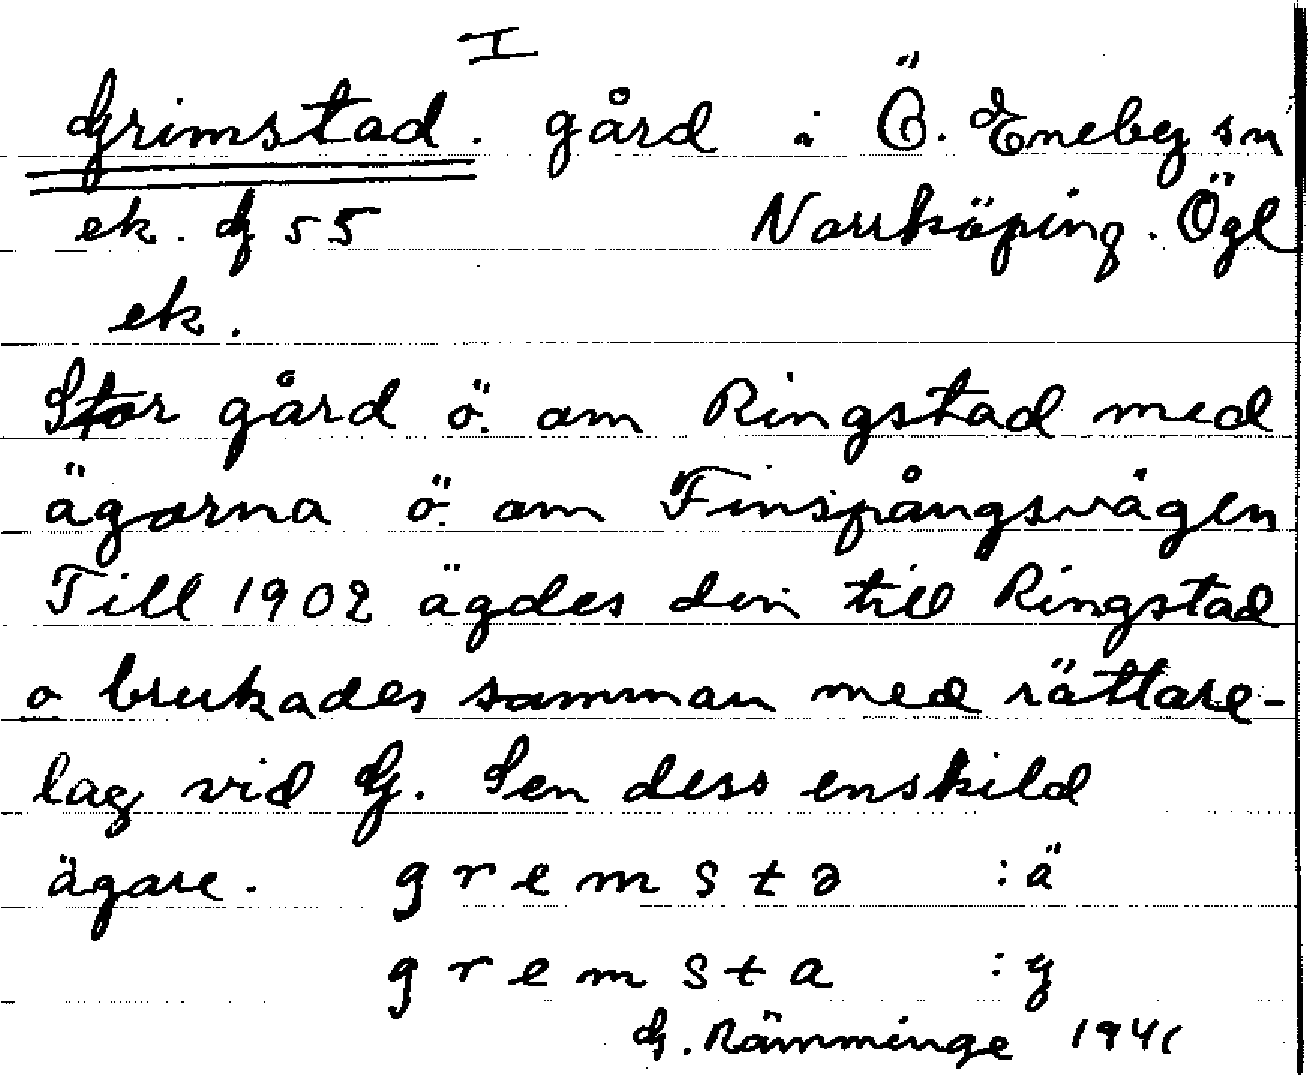 I
Grimstad. gård i Ö. Eneby sn
ek. G 55 Norrköping. Ögl
ek.
Stor gård ö. om Ringstad med
ägorna ö. om Finspångsvägen
Till 1902 ägdes den till Ringstad
o brukades samman med rättare-
lag vid G. Sen dess enskild
ägare. g r e m s t ə :ä
g r e m s t a :y
G. Rämminge 1941